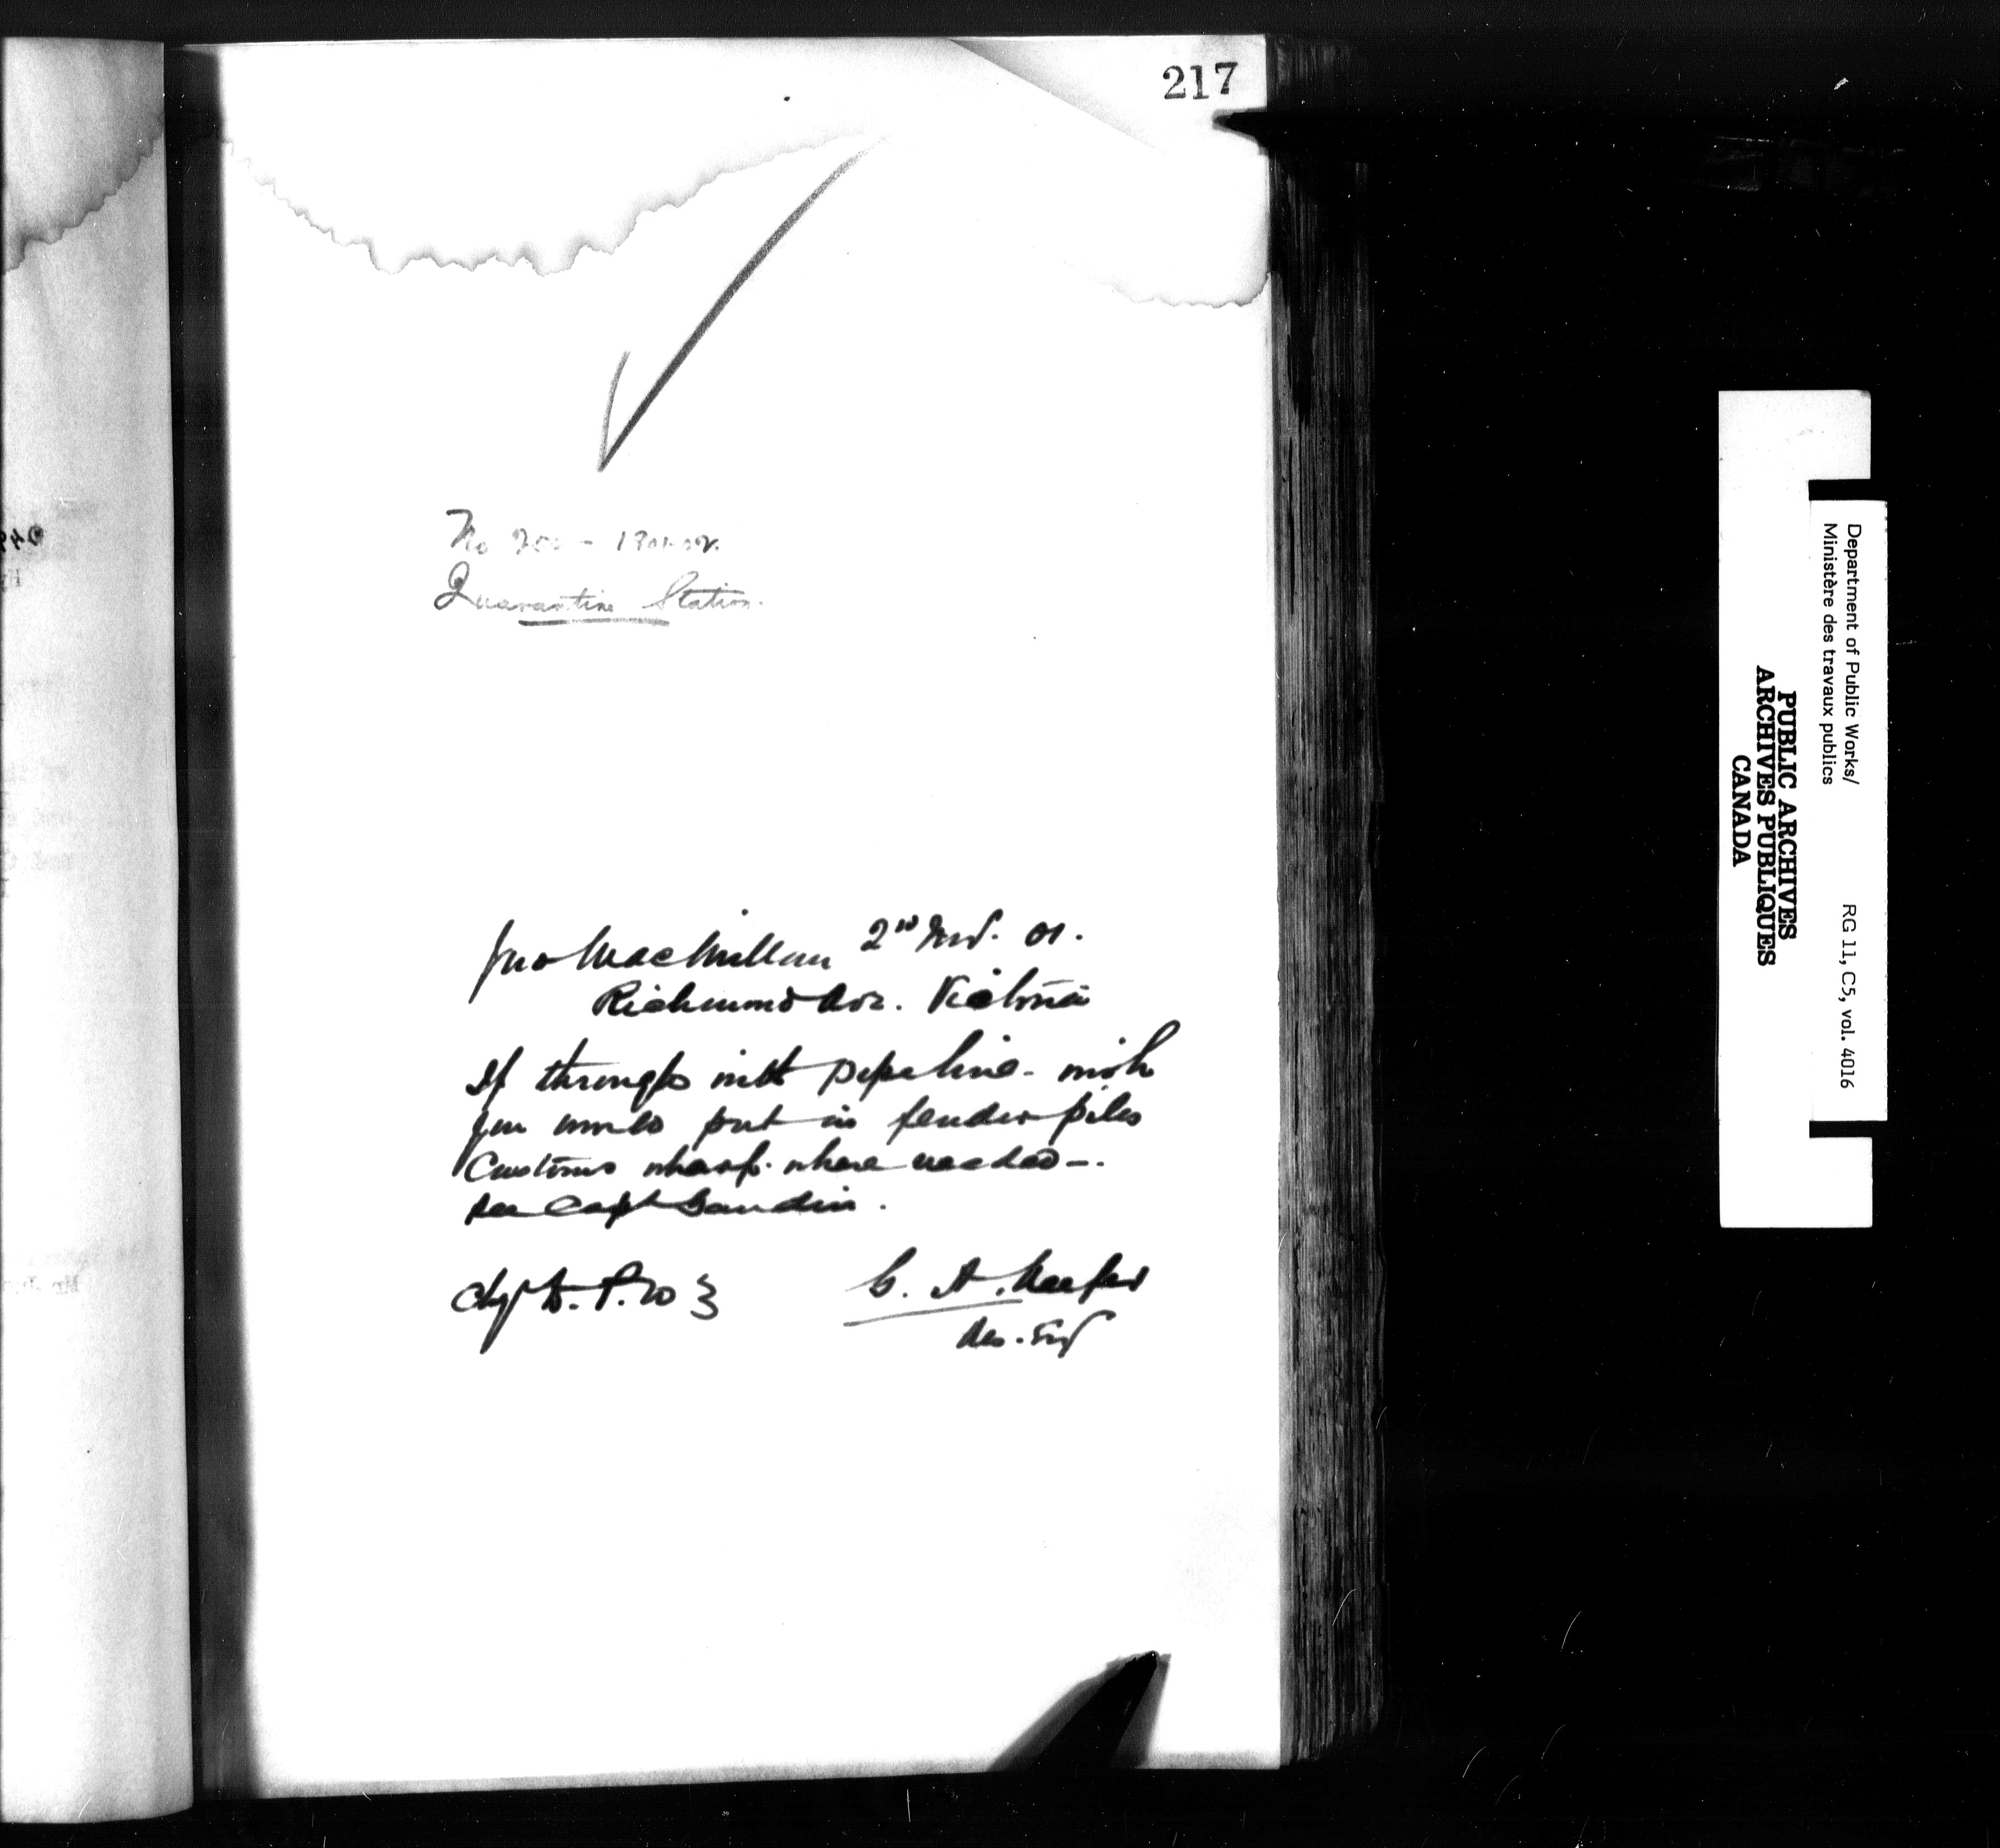 217
No 200 - 1901-02.
Quarantine Station.
Jno MacMillan 2nd Nov. 01.
Richmond Ave. Victoria
If through with pipe line - wish
you would put in fender piles
Customs wharf. where needed -.
See Capt Gaudin.
Chg D. P. W
G. A. Keefer
Res. Eng
Department of Public Works/
Ministère des travaux publics
RG 11, C5, vol. 4016
PUBLIC ARCHIVES
ARCHIVES PUBLIQUES
CANADA